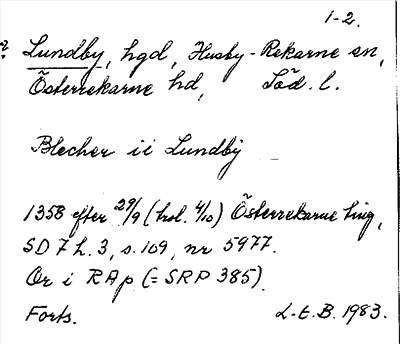 1-2.
Lundby, hgd, Husby-Rekarne sn,
Österrekarne hd, Söd. l.
Blecher ii Lundby
1358 efter 29/9 (trol. 4/10) Österrekarne ting,
SD 7 h. 3, s. 109, nr 5977.
Or i RAp (= SRP 385).
Forts. L-E.B. 1983.